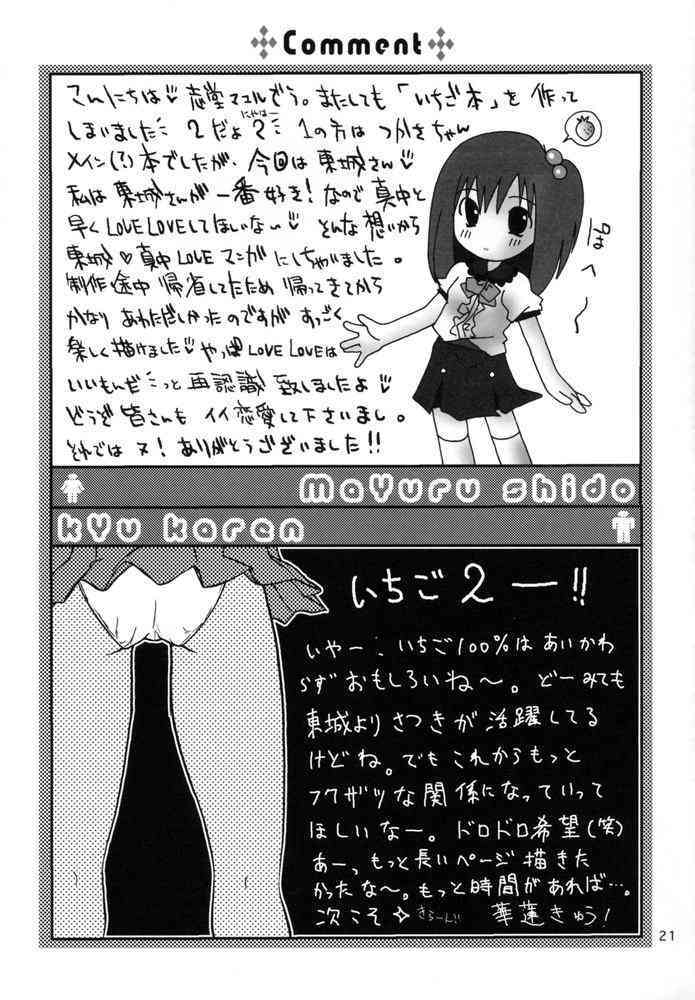 Comment
こんにちは♡ 志堂マユルでぅ。またしても「いちご本」を作って
しまいました 2だよ2 にゃはー 1の方は つかさちゃん
メイン(?)本でしたが、今回は東城さん♡
私は東城さんが一番好き!なので真中と
早くLOVELOVEしてほしいな〜♡ そんな想いから
東城♡真中LOVEマンガにしちゃいました。
制作途中帰省してたため帰ってきてから
かなりあわただしかったのですがすっごく
楽しく描けました♡やっぱLOVE LOVEは
いいもんだ〜っと再認識致しましたよ♡
どうぞ皆さんもイイ恋愛して下さいまし。
それではヌ!ありがとうございました!!
Mayuru shido
kyu karen
いちご2ー!!
いやー、いちご100%はあいかわ
らずおもしろいね〜。どーみても
東城よりさつきが活躍してる
けどね。でもこれからもっと
フクザツな関係になっていって
ほしいなー。ドロドロ希望(笑)
あーっもっと長いページ描きた
かったな〜。もっと時間があれば…。
次こそ✧きらーん!! 華蓮きゅう!
21